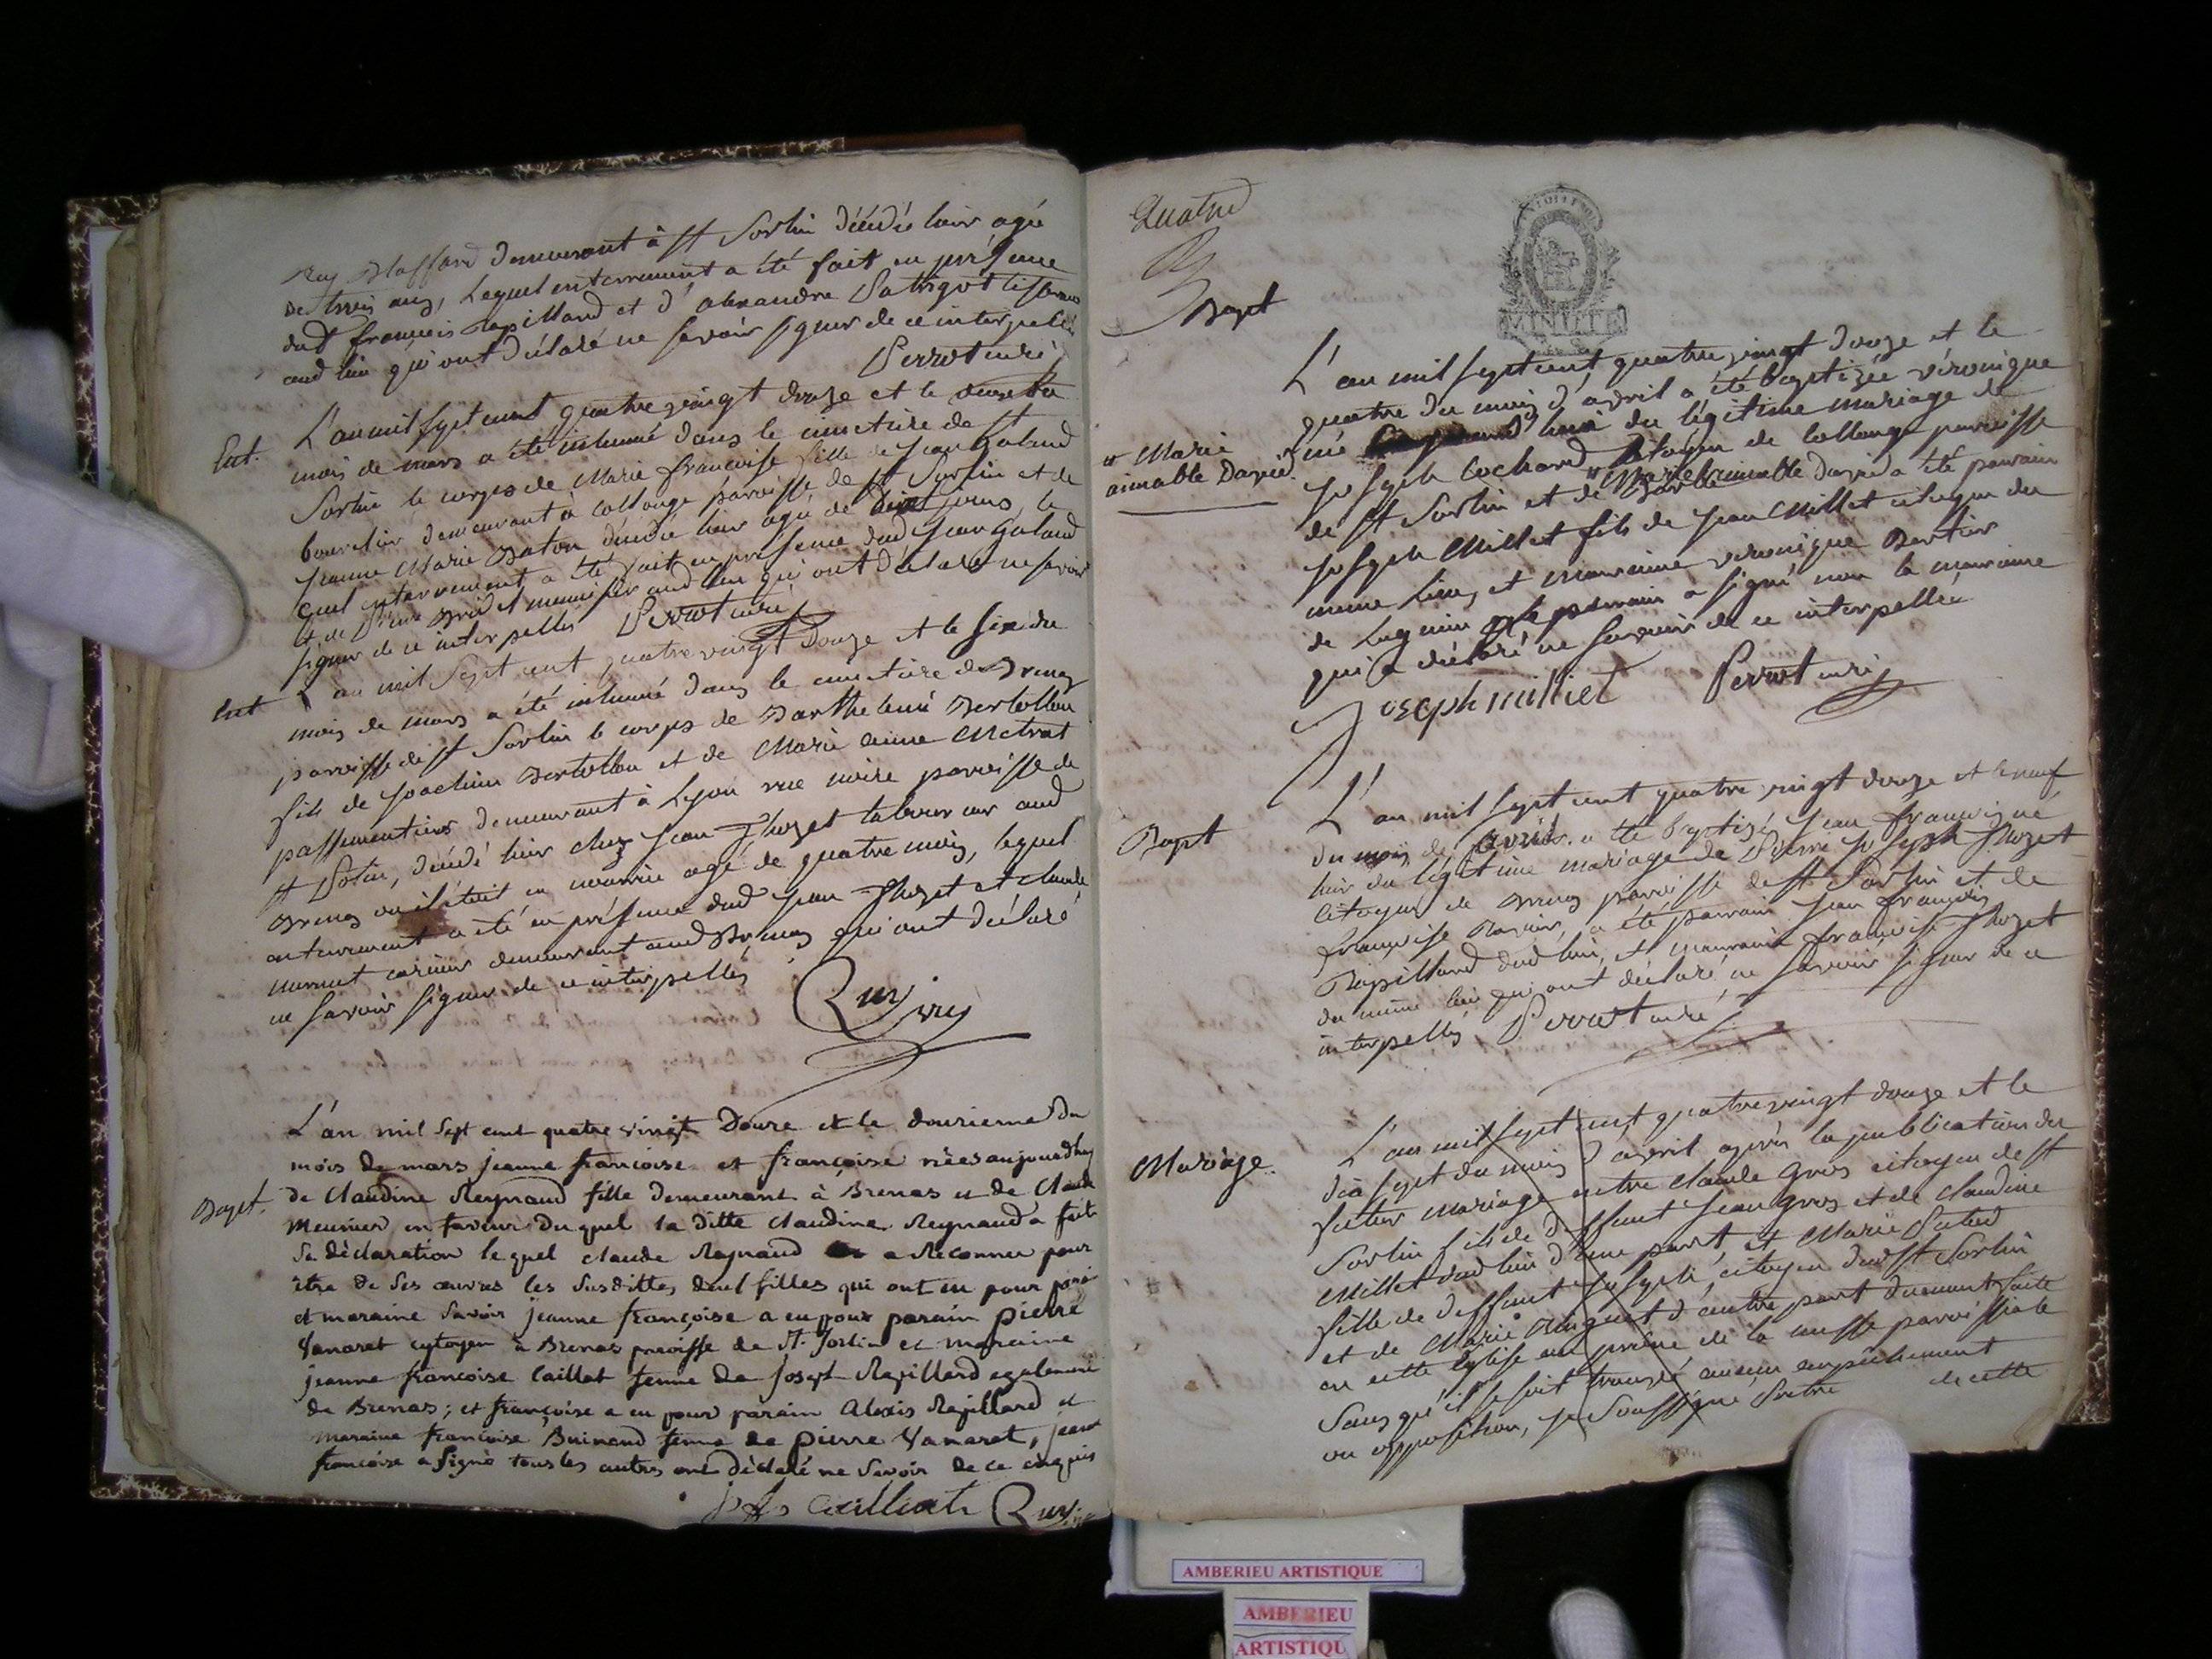 demeurant à St Sorlin décédé hier agée
de trois ans, lequel enterrement a été fait en présence
dud françois rapilliard et d'alexandre
aud lieu qui ont déclaré ne savoir signer de ce interpellés
Perrot curé
Ent.
L'an mil sept cent quatre vingt douze et le du
mois de mars a été inhumé dans le cimetière de St
Sorlin le corps de Marie françoise fille de Jean Galand
demeurant à Collonge paroisse de St Sorlin et de
Jeanne Marie Baton décédé hier agé de jours, le
quel enterrement a été fait en présence dud Jean Galand
et de aud lieu qui ont déclaré ne savoir
signer de ce interpellés Perrot curé
Ent
L'an mil Sept cent quatre vingt douze et le six du
mois de mars a été inhumé dans le cimetière de Brenas
paroisse de St Sorlin le corps de Barthelemi Bertollon
fils de Joachim Bertollon et de Marie anne Metrat
passementiers demeurant à Lyon rue noire paroisse de
St décédé hier chez Jean Thozet laboureur aud
Brenas ou il étoit en nourrice agé de quatre mois, lequel
enterrement a été en présence dud Jean Thozet et claude
demeurant aud Brenas qui ont déclaré
ne savoir signer de ce interpellés
Bapt.
L'an mil Sept cent quatre vingt Douze et le douzieme Du
mois de mars jeanne françoise et françoise nées aujourdhuy
de Claudine Reynaud fille Demeurant à Brenas et de Claude
Meunier en faveur Duquel la ditte claudine Reynaud a fait
Sa déclaration lequel claude Raynaud a Reconnu pour
être de Ses œuvres les Susdittes deux filles qui ont eu pour
et maraine Savoir jeanne françoise a eu pour parain pierre
Vanaret cytoyen à Brenas paroisse de St. Sorlin et maraine
jeanne françoise Caillat femme de Joseph Rapillard egalement
de Brenas; et françoise a eu pour parain Alexis Rapillard et
maraine françoise femme de pierre Vanaret, jeane
francoise a Signé tous les autres ont déclaré ne Savoir de ce enquis
Quatre
Bapt
MINUTE
L'an mil sept cent quatre vingt douze et le
quatre du mois d'avril a été baptizée véronique
née hier du légitime mariage de
joseph Cochard citoyen de Collonge paroisse
# Marie
aimable David.
de St Sorlin et de David a été parrain
joseph Millet fils de Jean Millet citoyen du
meme lieu, et marraine véronique
de Lagnieu le parrain a signé non la marraine
qui a déclaré ne savoir de ce interpellée
Joseph milliet Perrot curé
Bapt
L'an mil sept cent quatre vingt douze et le neuf
du mois de avril a été baptizé Jean françois né
hier du légitime mariage de Pierre joseph Thozet
Citoyen de Brenas paroisse de St Sorlin et de
françoise a été parrain Jean françois
Rapilliard dud lieu, et marraine françoise Thozet
du même lieu qui ont déclaré ne Savoir signer de ce
interpellés Perrot curé
Mariage.
L'an mil sept cent quatre vingt douze et le
dix sept du mois d'avril après la publication du
futur Mariage entre Claude Gros citoyen de St
Sorlin fils de deffunt Jean Gros et de Claudine
Millet dud lieu d'une part, et Marie
fille de deffunt joseph, citoyen dud St Sorlin
et de Marie d'autre part duement faite
en cette église au prône de la messe paroissiale
Sans qu'il se soit trouvé aucun empêchement
ou opposition, je Soussigné de cette
AMBERIEU ARTISTIQUE
AMBERIEU
ARTISTIQU